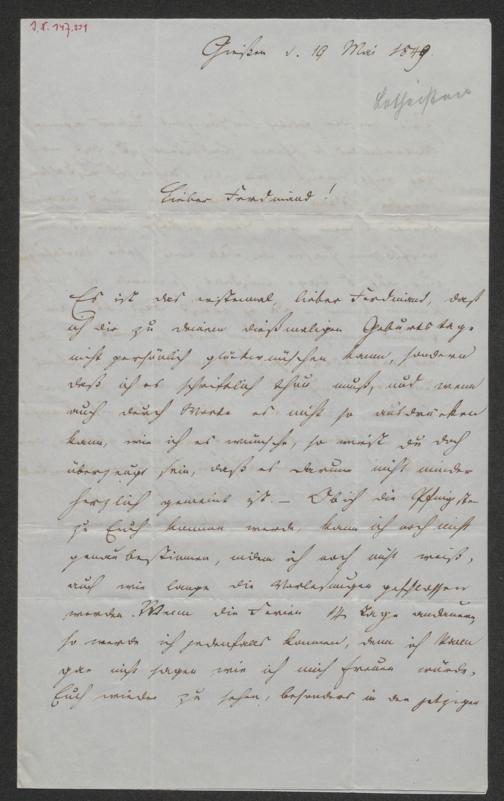 I. N. 147.221
Gießen d. 19 Mai 1849
Lieber Ferdinand!
Es ist das erstemal, lieber Ferdinand, daß
ich dir zu deinem dießmaligen Geburtstage
nicht persönlich glückwünschen kann, sondern
daß ich es schriftlich thun muß, und wenn
auch durch Worte es nicht so ausdrücken
kann, wie ich es wünsche, so wirst du doch
überzeugt sein, daß es darum nicht minder
herzlich gemeint ist. – Ob ich die Pfingsten
zu Euch kommen werde, kann ich noch nicht
genau bestimmen, indem ich noch nicht weiß,
auf wie lange die Vorlesungen geschlossen
werden. Wenn die Ferien 14 Tage andauern,
so werde ich jedenfalls kommen, denn ich kann
gar nicht sagen wie ich mich freuen würde,
Euch wieder zu sehen, besonders in den jetzigen